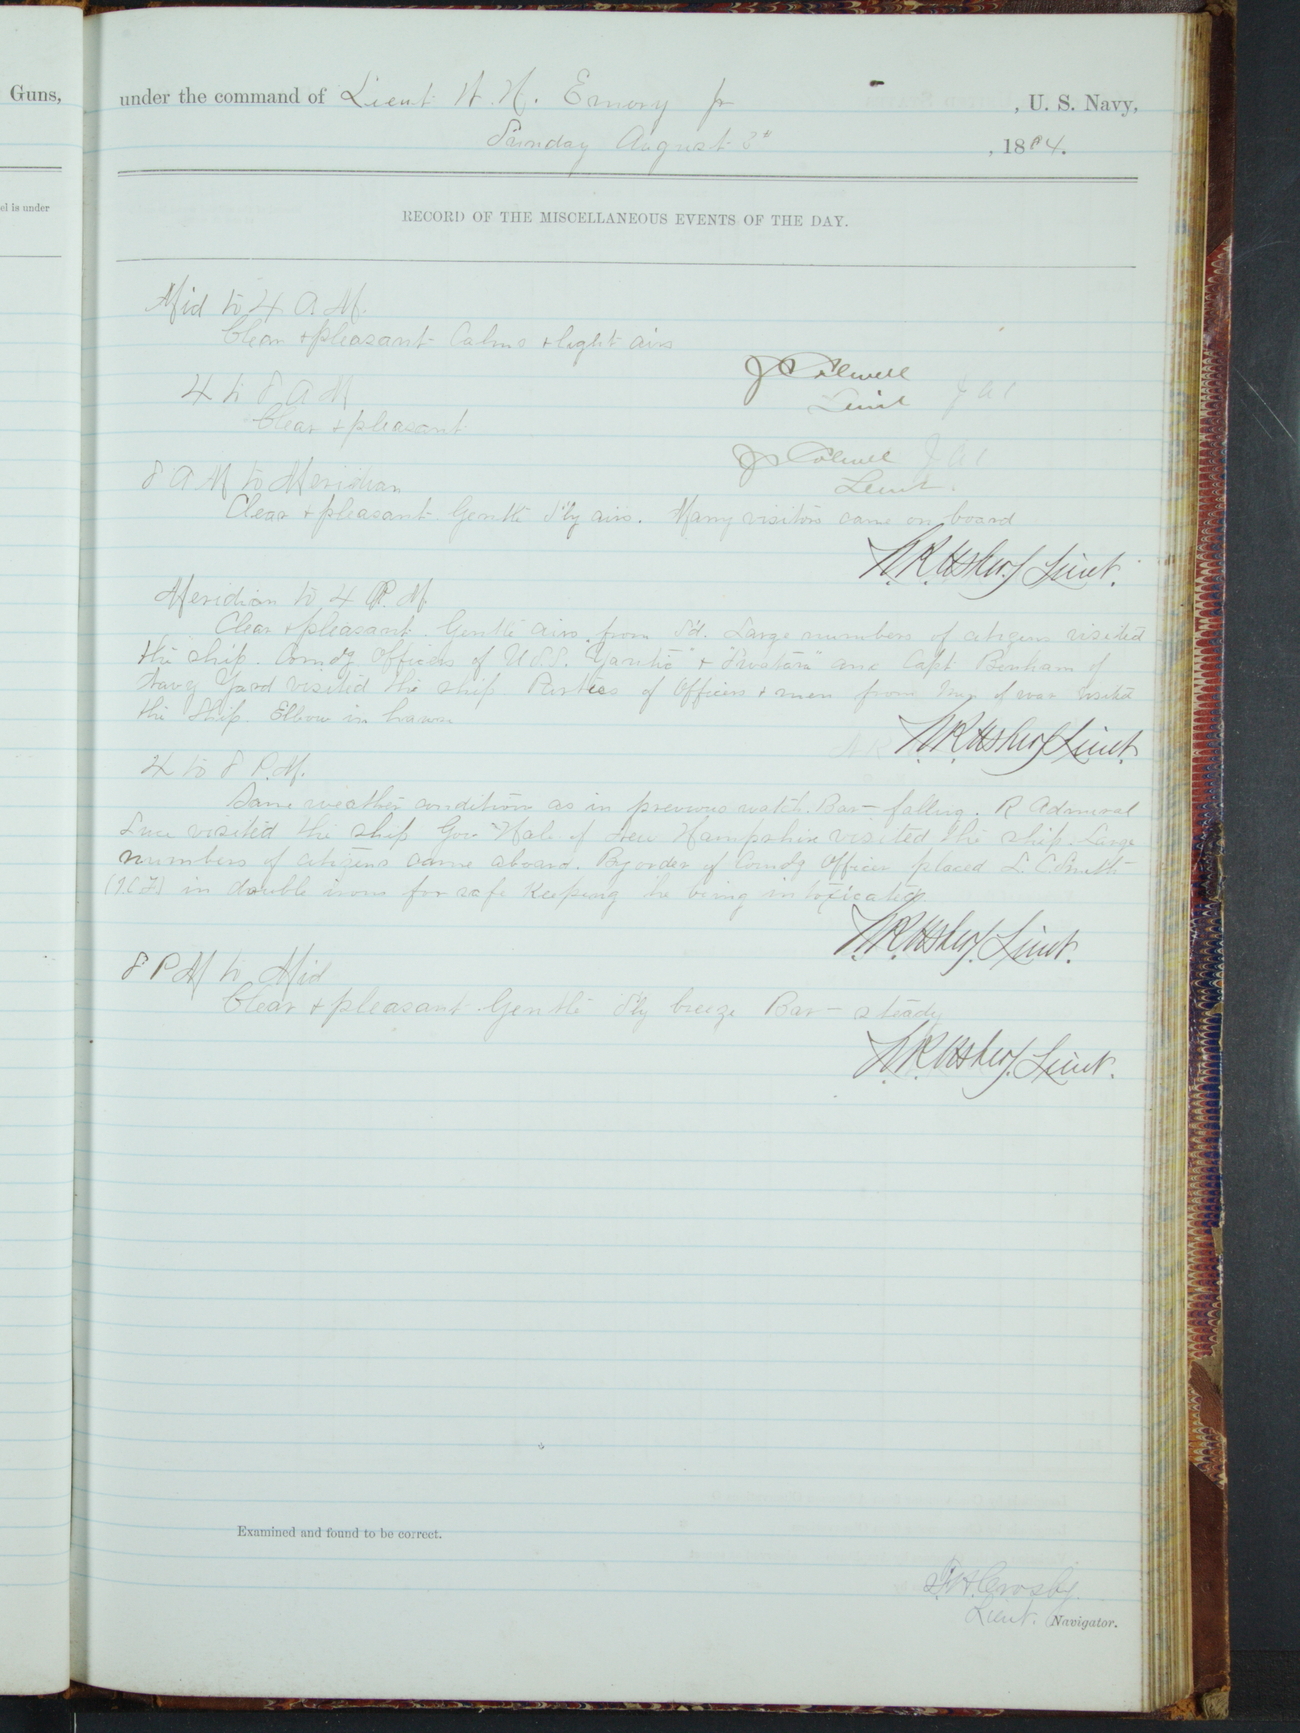 Guns,
under the command of Lieut W. H. Emory Jr , U. S. Navy,
Sunday August 3d , 1884.
el is under
RECORD OF THE MISCELLANEOUS EVENTS OF THE DAY.
Mid to 4 A M.
Clear + pleasant Calms + light airs
J C Colwell
Lieut
4 to 8 A M
Clear + pleasant
J C Colwell
Lieut.
8 A M to Meridian
Clear + pleasant. Gentle S'ly airs. Many visitors came on board
N. R. Usher, Lieut.
Meridian to 4 P. M.
Clear + pleasant. Gentle airs from S'd. Large numbers of citizens visited
the ship. Comdg Officers of U.S.S. "Yantic" + "Swatara" and Capt Benham of
Navy Yard visited the ship Parties of Officers + men from Men of war visited
the Ship. Elbow in hawse
N. R. Usher, Lieut.
4 to 8 P. M.
Same weather conditions as in previous watch. Bar- falling. R Admiral
Luce visited the ship Gov "Hale of New Hampshire visited the ship. Large
numbers of citizens came aboard. By order of Comdg Officer placed L. C. Smith
in double irons for safe keeping he being intoxicated.
N. R. Usher, Lieut.
8 P M to Mid
Clear + pleasant Gentle S'ly breeze Bar- steady
N. R. Usher, Lieut.
Examined and found to be correct.
F. H. Crosby.
Lieut. Navigator.